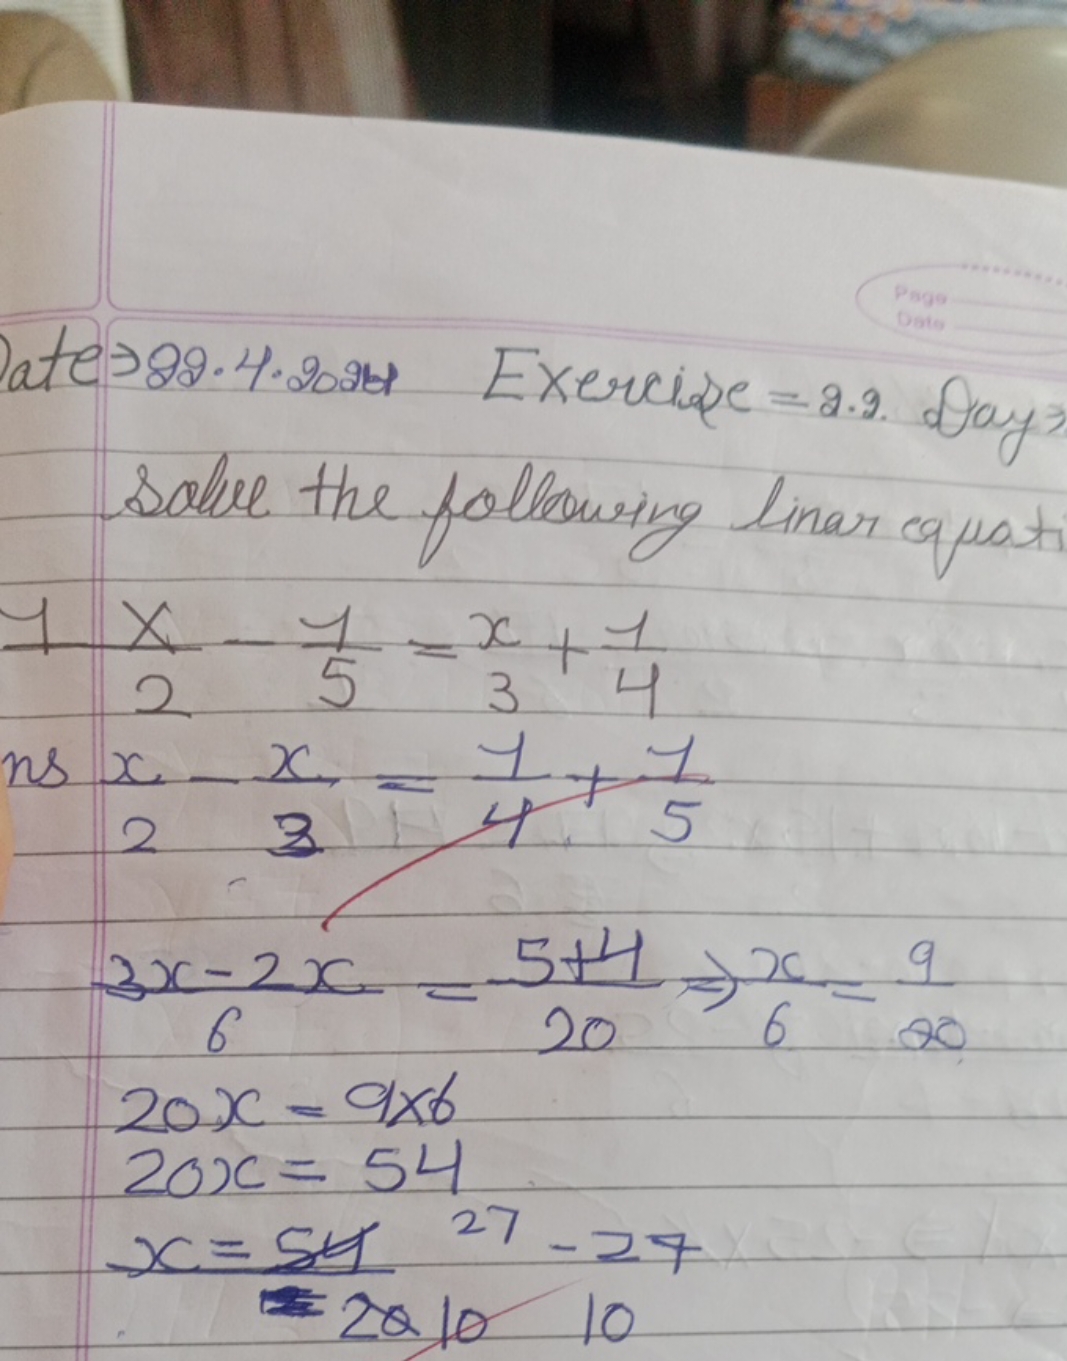 Page
Date
Date⇒22.4.2024 Exercise = 2.2. Day⇒
solve the following linar equati
1 x/2 - 1/5 = x/3 + 1/4
ns x/2 - x/3 = 1/4 + 1/5
3x-2x/6 = 5+4/20 ⇒ x/6 = 9/20
20x = 9x6
20x = 54
x = 54 27/20 10 - 27/10